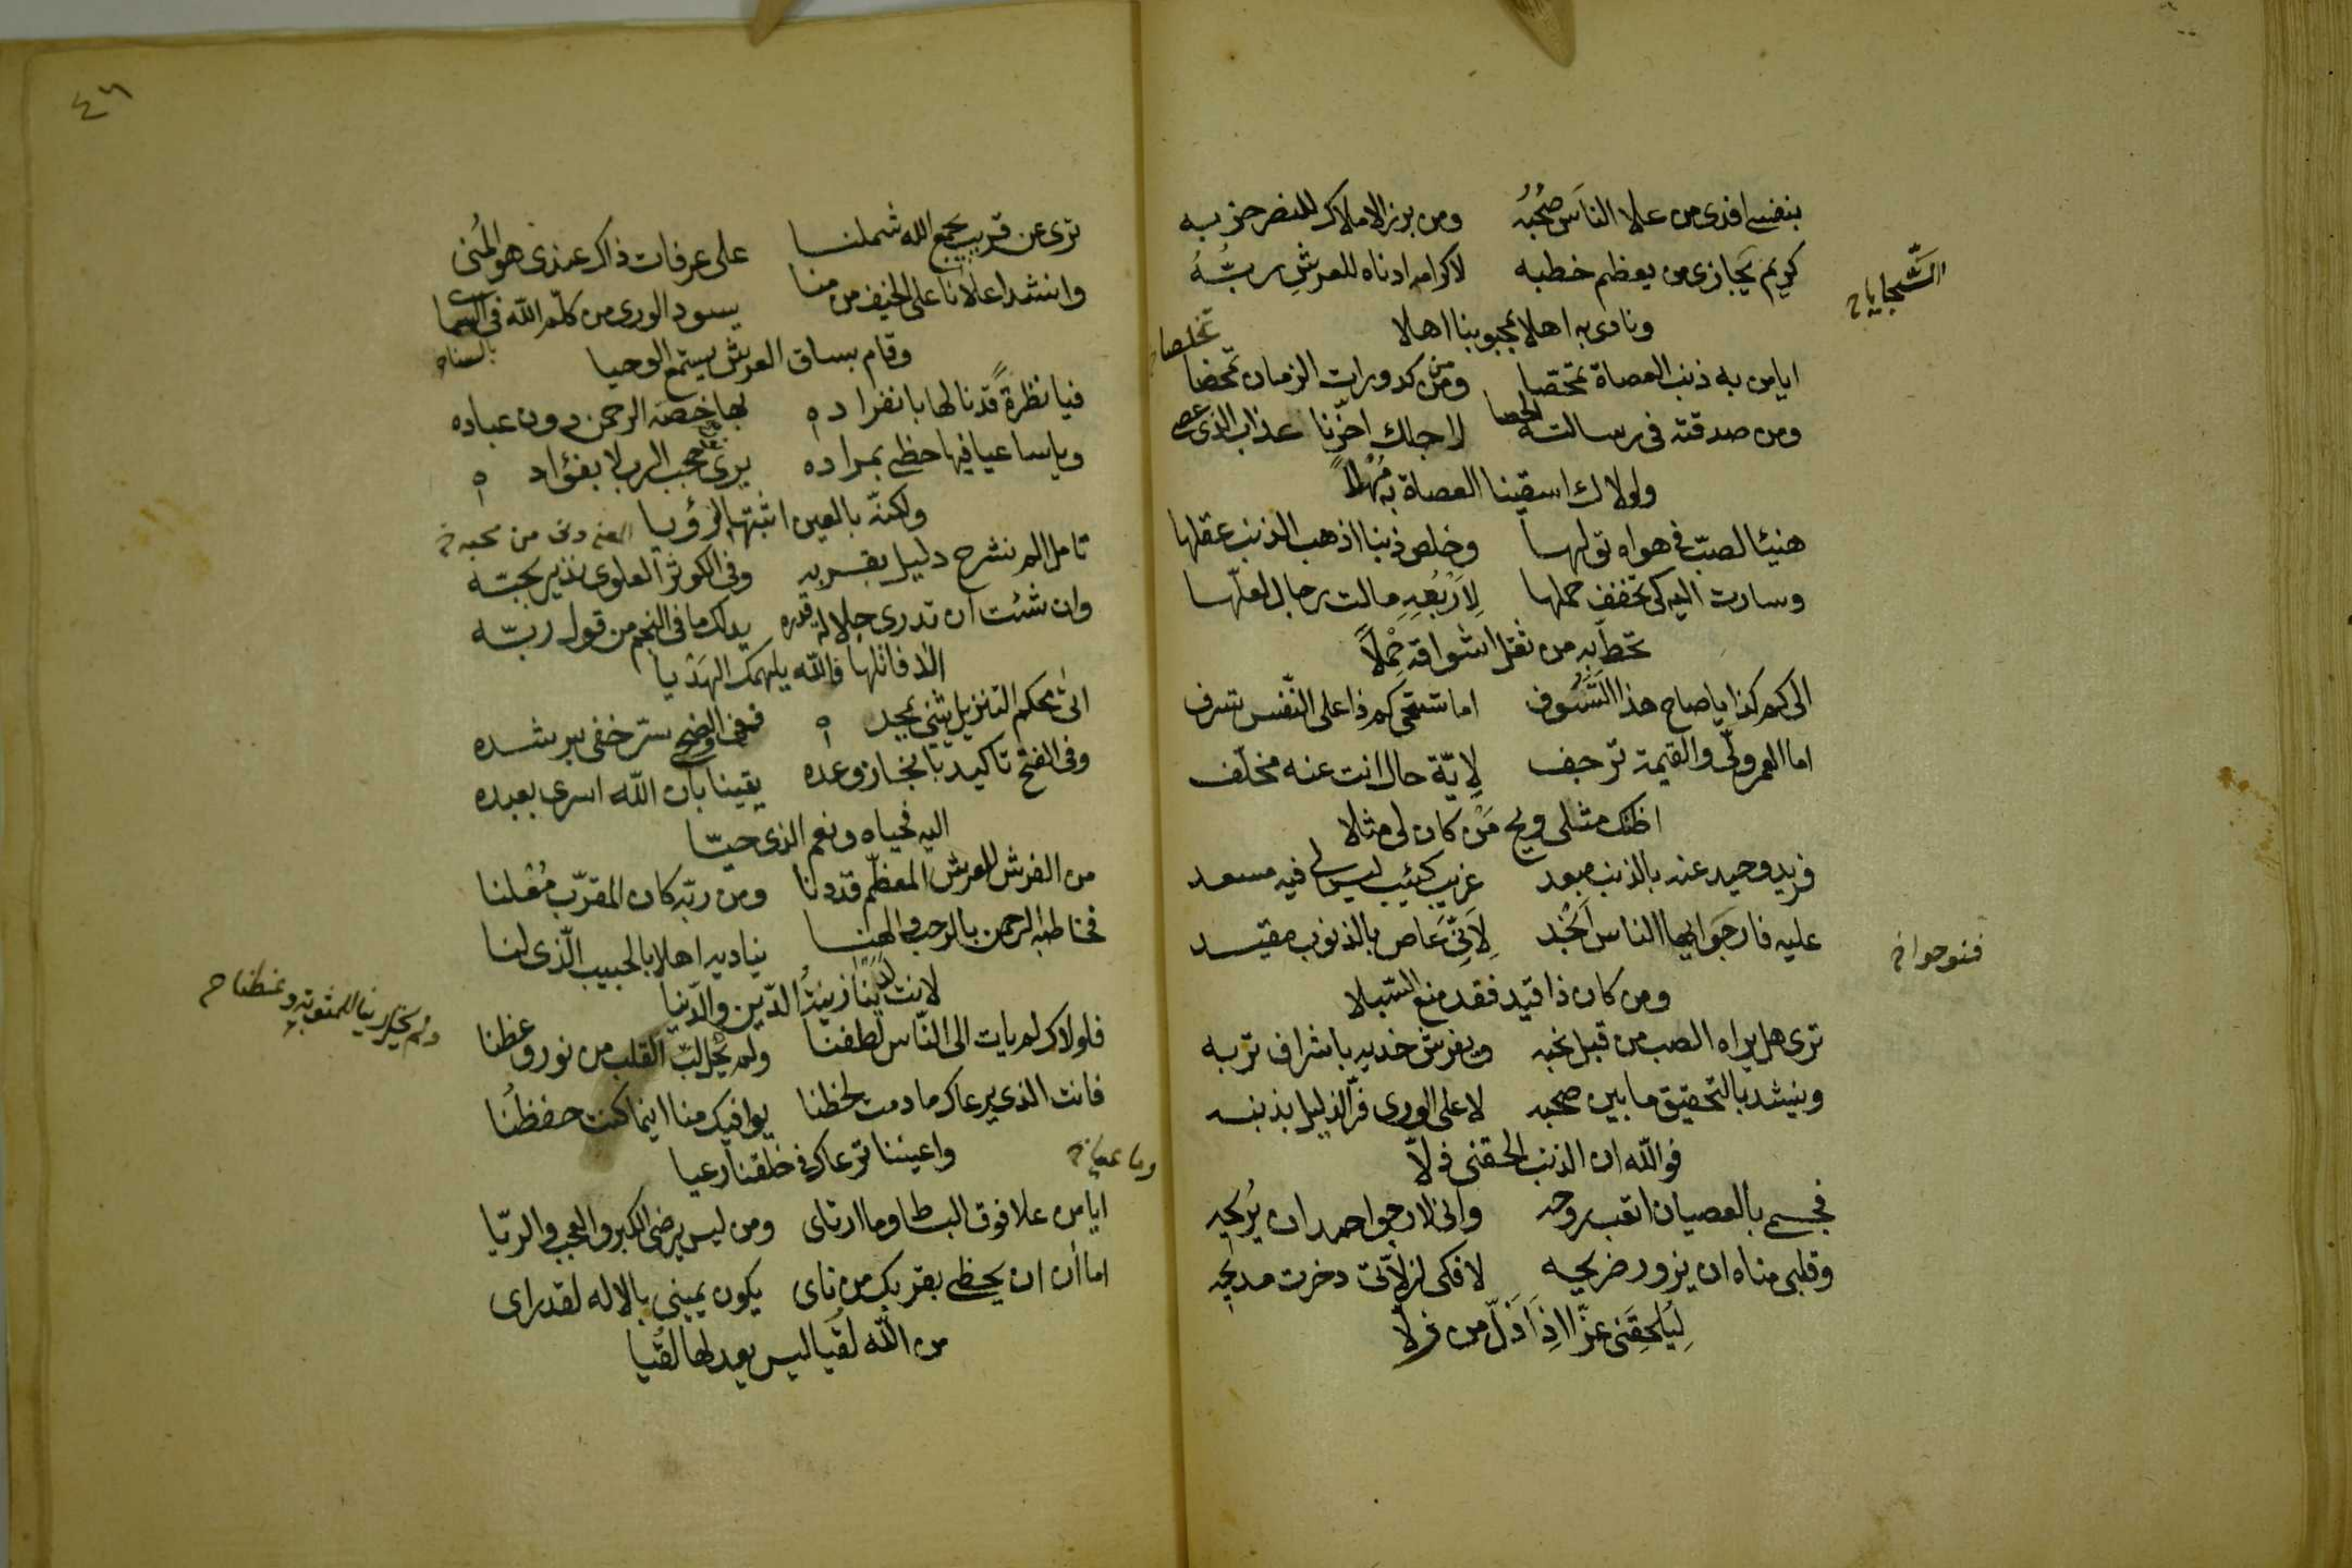 بنفسي افدى من علا الناس صُحْبُه ومن برز الاملاك للنصر حزبه
كريم يجازى من يعظم خطبه لاكرامه ادناه للعرش ربُّهُ
السَّجاياخ
ونادى به اهلا بمحبوبنا اهلا
ايا من به ذنب العصاة تمحّصا ومن كدورات الزمان تمحضا
تخلصا خ
ومن صدقته في رسالته الحصا لاجلك اخّرنا عذاب الذى عصى
ولولاك اسقينا العصاة به مُهْلاً
هنيئا لصبّ في هواه تولها وخلص ذنبا اذهب الذنب عقلها
وسارت اليه كي تخفف حملها لِاَرْبُعِهِ مالت رحال لعلّها
تحطّ به من ثقل اشواقه حِمْلاً
الى كم كذا يا صاح هذا التَّسَوُّف اما تستحي كم ذا على النّفس تسرف
اما العمر ولّى والقيمة ترجف لايّة حال انت عنه مخلّف
اظنك مثلى ويح مَنْ كان لى مثلا
فريد وحيد عنه بالذنب مبعد غريب كئيب ليس لى فيه مسعد
عليه فارجوا ايها الناس انجُد لِاَنّى عَاص بالذنوب مقيّد
فنوحوا خ
ومن كان ذا قيد فقد منع السّبلا
ترى هل يراه الصب من قبل نحبه ويفرش خديه باشراف تربه
وينشد بالتحقيق ما بين صحبه لاعلى الورى فرّ الذليل بذنبه
فوالله ان الذنب الحقنى ذلاّ
فجسمي بالعصيان اتعب روحه وانى لارجوا احمد ان يُريحه
وقلبى مناه ان يزور ضريحه لافكى لزلاّتى دخرت مديحه
لِيُلْحِقَنى عزّا اذا ذلّ من زلاّ
٤٦
ترى عن قريب يجمع الله شملنا على عرفات ذاك عندى هو المُنى
وانشد اعلانا على الخيف من منا يسود الورى من كلّم الله في السما
بالسناخ
وقام بساق العرش يستمع الوحيا
فيا نظرةً قدنا لها بانفراده بها خصه الرحمن دون عباده
ويا ساعيا فيها حظى بمراده يرى حجب الرب لا بفؤاده
ولكنّه بالعين اثبتها لرؤيا
تامل الم نشرح دليل بقربه وفى الكوثر العلوى نذير بحبّه
وان شئت ان تدرى جلالة قدره يدلك ما فى النجم من قول ربّه
الا فاتلها فالله يلهمك الهَدْيا
اتى محكم التنزيل يثنى بمجده ففى والضحى سرّ خفى برشده
وفى الفتح تاكيد بانجاز وعده يقينا بان الله اسرى بعبده
اليه فحياه ونعم الذى حيّا
من الفرش للعرش المعظّم قد دنا ومن ربّه كان المقرّب مُعْلنا
فخاطبه الرحمن بالرحب والهنا يناديه اهلا بالحبيب الّذى لنا
لانت لدينا زينةُ الدّين والدّنيا
فلولاك لم يات الى النّاس لطفنا ولم يخل لبّ القلب من نور وعظنا
فانت الذى يرعاك ما دمت لحظنا يوافيك منا اينما كنت حفظُنا
واعيننا ترعاك فى خلقنا رعيا
ايا من علا فوق البسطا وما ارتاى ومن ليس يرضى الكبر والعجب والريّا
اما أن ان يحظى بقربك من ناى يكون يمينى بالاله لقد راى
من الله لقيا ليس يعدلها لُقْيا